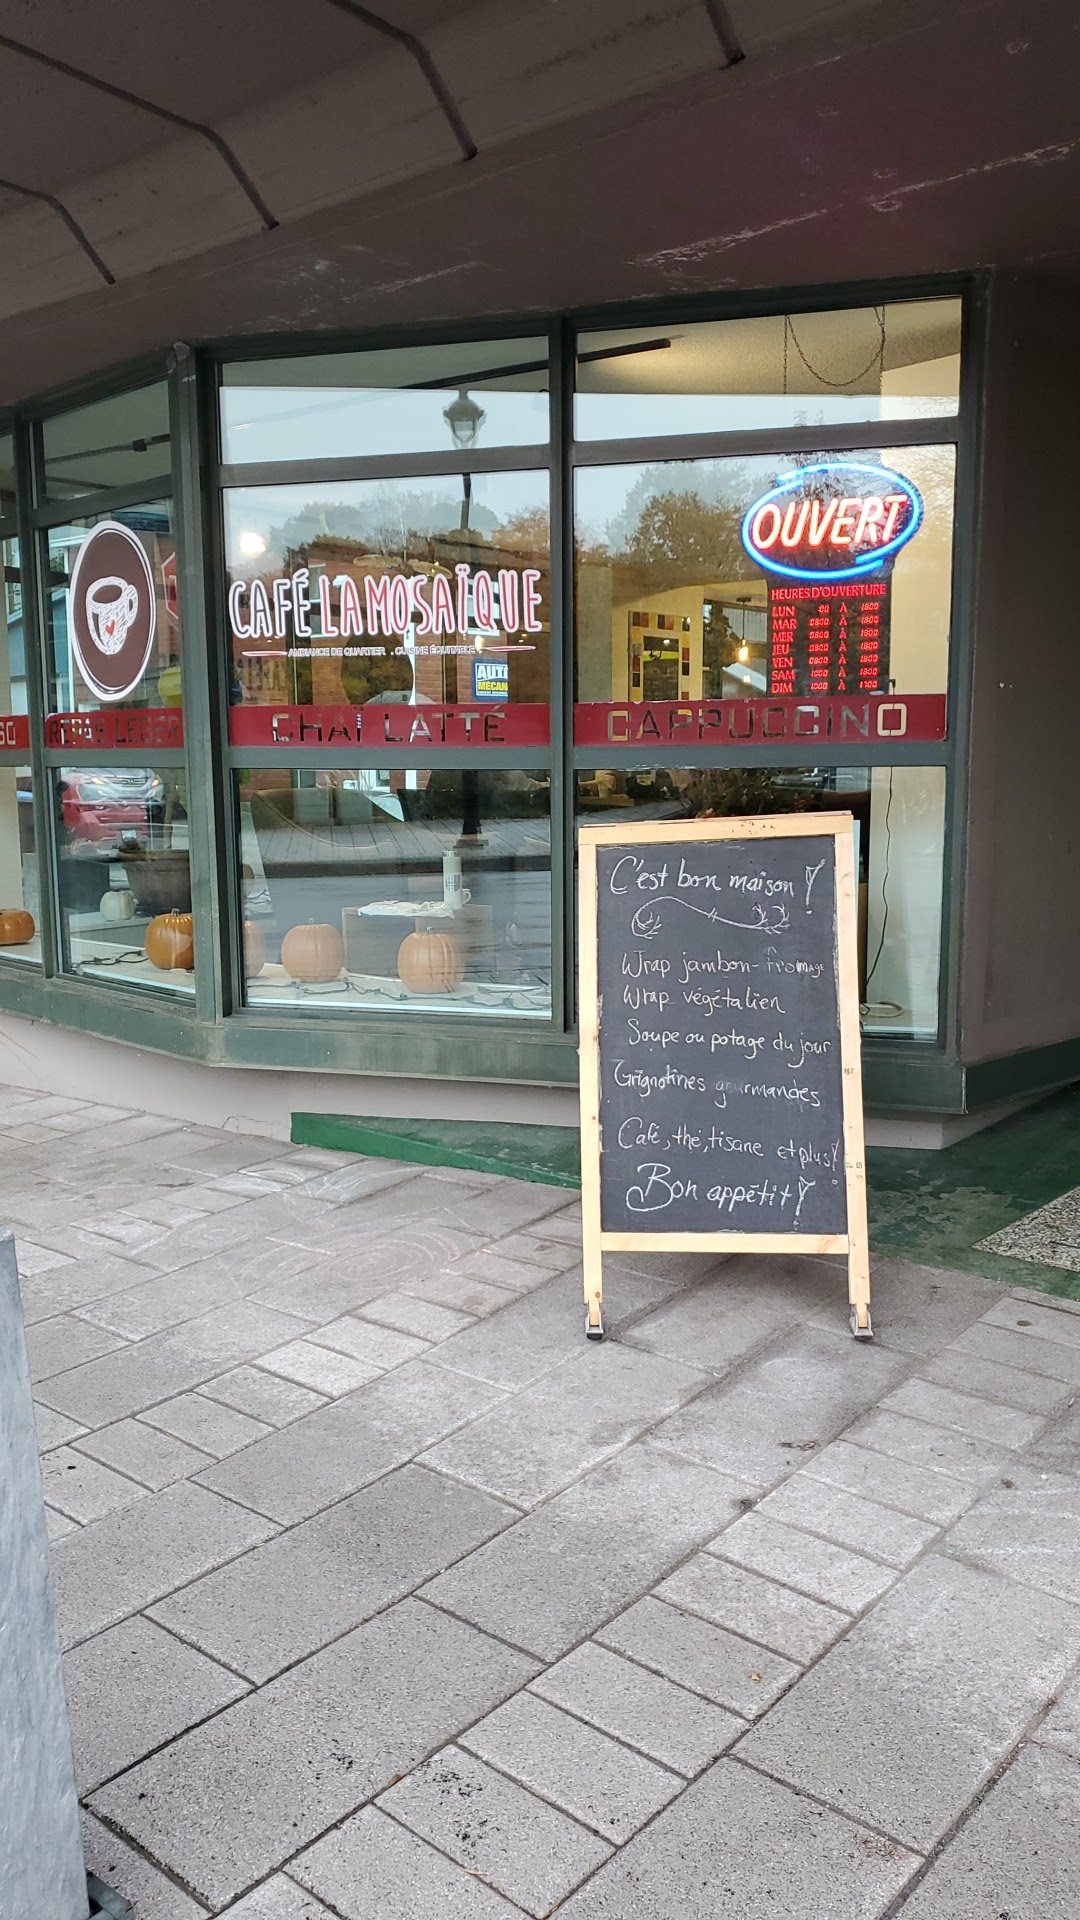 OUVERT
CAFÉ LA MOSAÏQUE
AMBIANCE DE QUARTIER . CUISINE ÉQUITABLE
HEURES D'OUVERTURE
LUN :00 À 18:00
MAR 08:00 À 18:00
MER 08:00 À 18:00
JEU 08:00 À 18:00
VEN 08:00 À 18:00
SAM 10:00 À 17:00
DIM 10:00 À 17:00
AUTO
MÉCAN
REPAS LÉGER
CHAÏ LATTÉ
CAPPUCCINO
C'est bon maison !
Wrap jambon-fromage
Wrap végétalien
Soupe ou potage du jour
Grignotines gourmandes
Café, thé, tisane et plus!
Bon appétit!